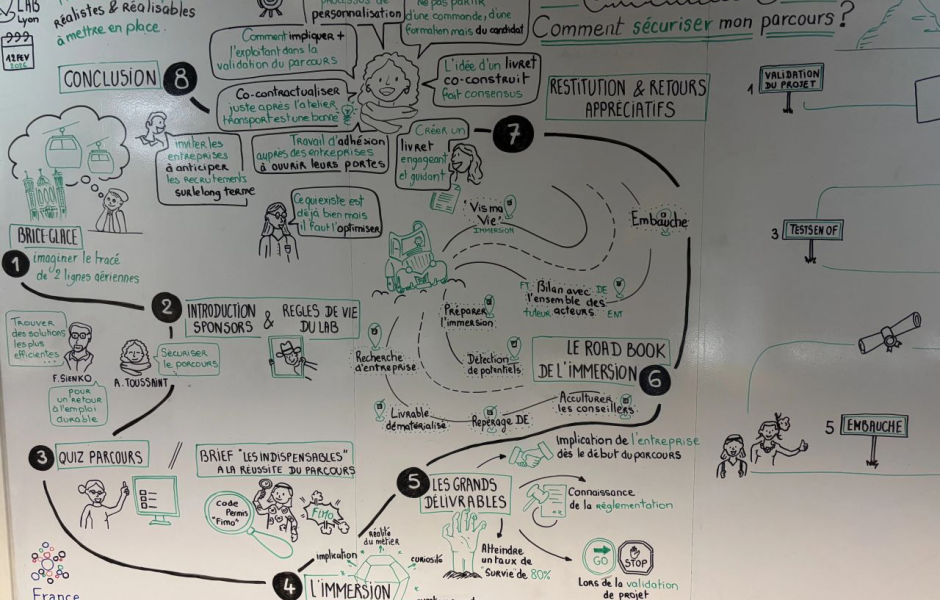 LAB
Lyon
12 FEV
2026
Réalistes & Réalisables
à mettre en place.
personnalisation
ne pas partir
d'une commande, d'une
formation mais du candidat
Comment sécuriser mon parcours ?
Comment impliquer +
l'exploitant dans la
validation du parcours
CONCLUSION 8
Co-contractualiser
juste après l'atelier
transport est une bonne
L'idée d'un livret
co-construit
fait consensus
RESTITUTION & RETOURS
APPRÉCIATIFS
7
Inviter les
entreprises
à anticiper
les recrutements
sur le long terme
Travail d'adhésion
auprès des entreprises
à ouvrir leurs portes
Créer un
livret
engageant
et guidant
Ce qui existe est
déjà bien mais
il faut l'optimiser
BRICE-GLACE
1 imaginer le tracé
de 2 lignes aériennes
2 INTRODUCTION
SPONSORS & REGLES DE VIE
DU LAB
Trouver
des solutions
les plus
efficientes
...
F. SIENKO
pour
un retour
à l'emploi
durable
A. TOUSSAINT
Sécuriser
le parcours
3 QUIZ PARCOURS
BRIEF "LES INDISPENSABLES"
A LA RÉUSSITE DU PARCOURS
Code
Permis
"Fimo"
Fimo
France
4 L'IMMERSION
implication
réalité
du métier
curiosité
5 LES GRANDS
DÉLIVRABLES
Implication de l'entreprise
dès le début du parcours
Connaissance
de la réglementation
Atteindre
un taux de
survie de 80%
GO
STOP
Lors de la validation
de projet
LE ROAD BOOK
DE L'IMMERSION 6
Acculturer
les conseillers
Repérage DE
Livrable
dématérialisé
Recherche
d'entreprise
Détection
de potentiels
Préparer
l'immersion
Vis ma
Vie
IMMERSION
FT Bilan avec DE
l'ensemble des
tuteur acteurs ENT
Embauche
1 VALIDATION
DU PROJET
3 TESTS EN OF
5 EMBAUCHE